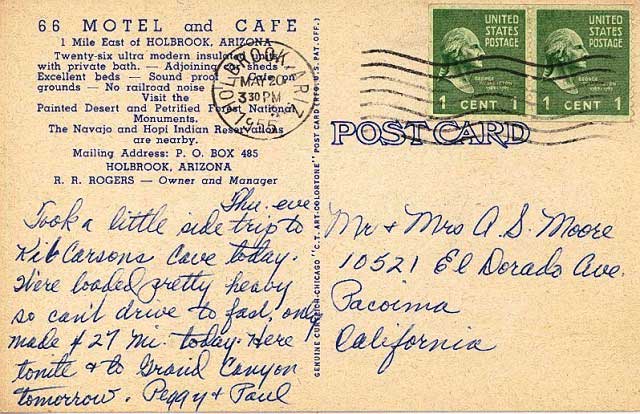 66 MOTEL and CAFE
1 Mile East of HOLBROOK, ARIZONA
Twenty-six ultra modern insulated units
with private bath. — Adjoining car sheds —
Excellent beds — Sound proof — Cafe on
grounds — No railroad noise
Visit the
Painted Desert and Petrified Forest National
Monuments.
The Navajo and Hopi Indian Reservations
are nearby.
Mailing Address: P. O. BOX 485
HOLBROOK, ARIZONA
R. R. ROGERS — Owner and Manager
HOLBROOK, ARIZ.
MAY 20
3 30 PM
1955
Thu. eve
Took a little side trip to
Kit Carsons Cave today.
Were loaded pretty heavy
so can't drive to fast, only
made 427 mi. today. Here
tonite & to Grand Canyon
tomorrow. Peggy & Paul
GENUINE CURTEICH-CHICAGO "C. T. ART-COLORTONE" POST CARD (REG. U. S. PAT. OFF.)
UNITED
STATES
POSTAGE
1 CENT 1
UNITED
STATES
POSTAGE
1 CENT 1
POST CARD
Mr & Mrs A. S. Moore
10521 El Dorado Ave.
Pacoima
California